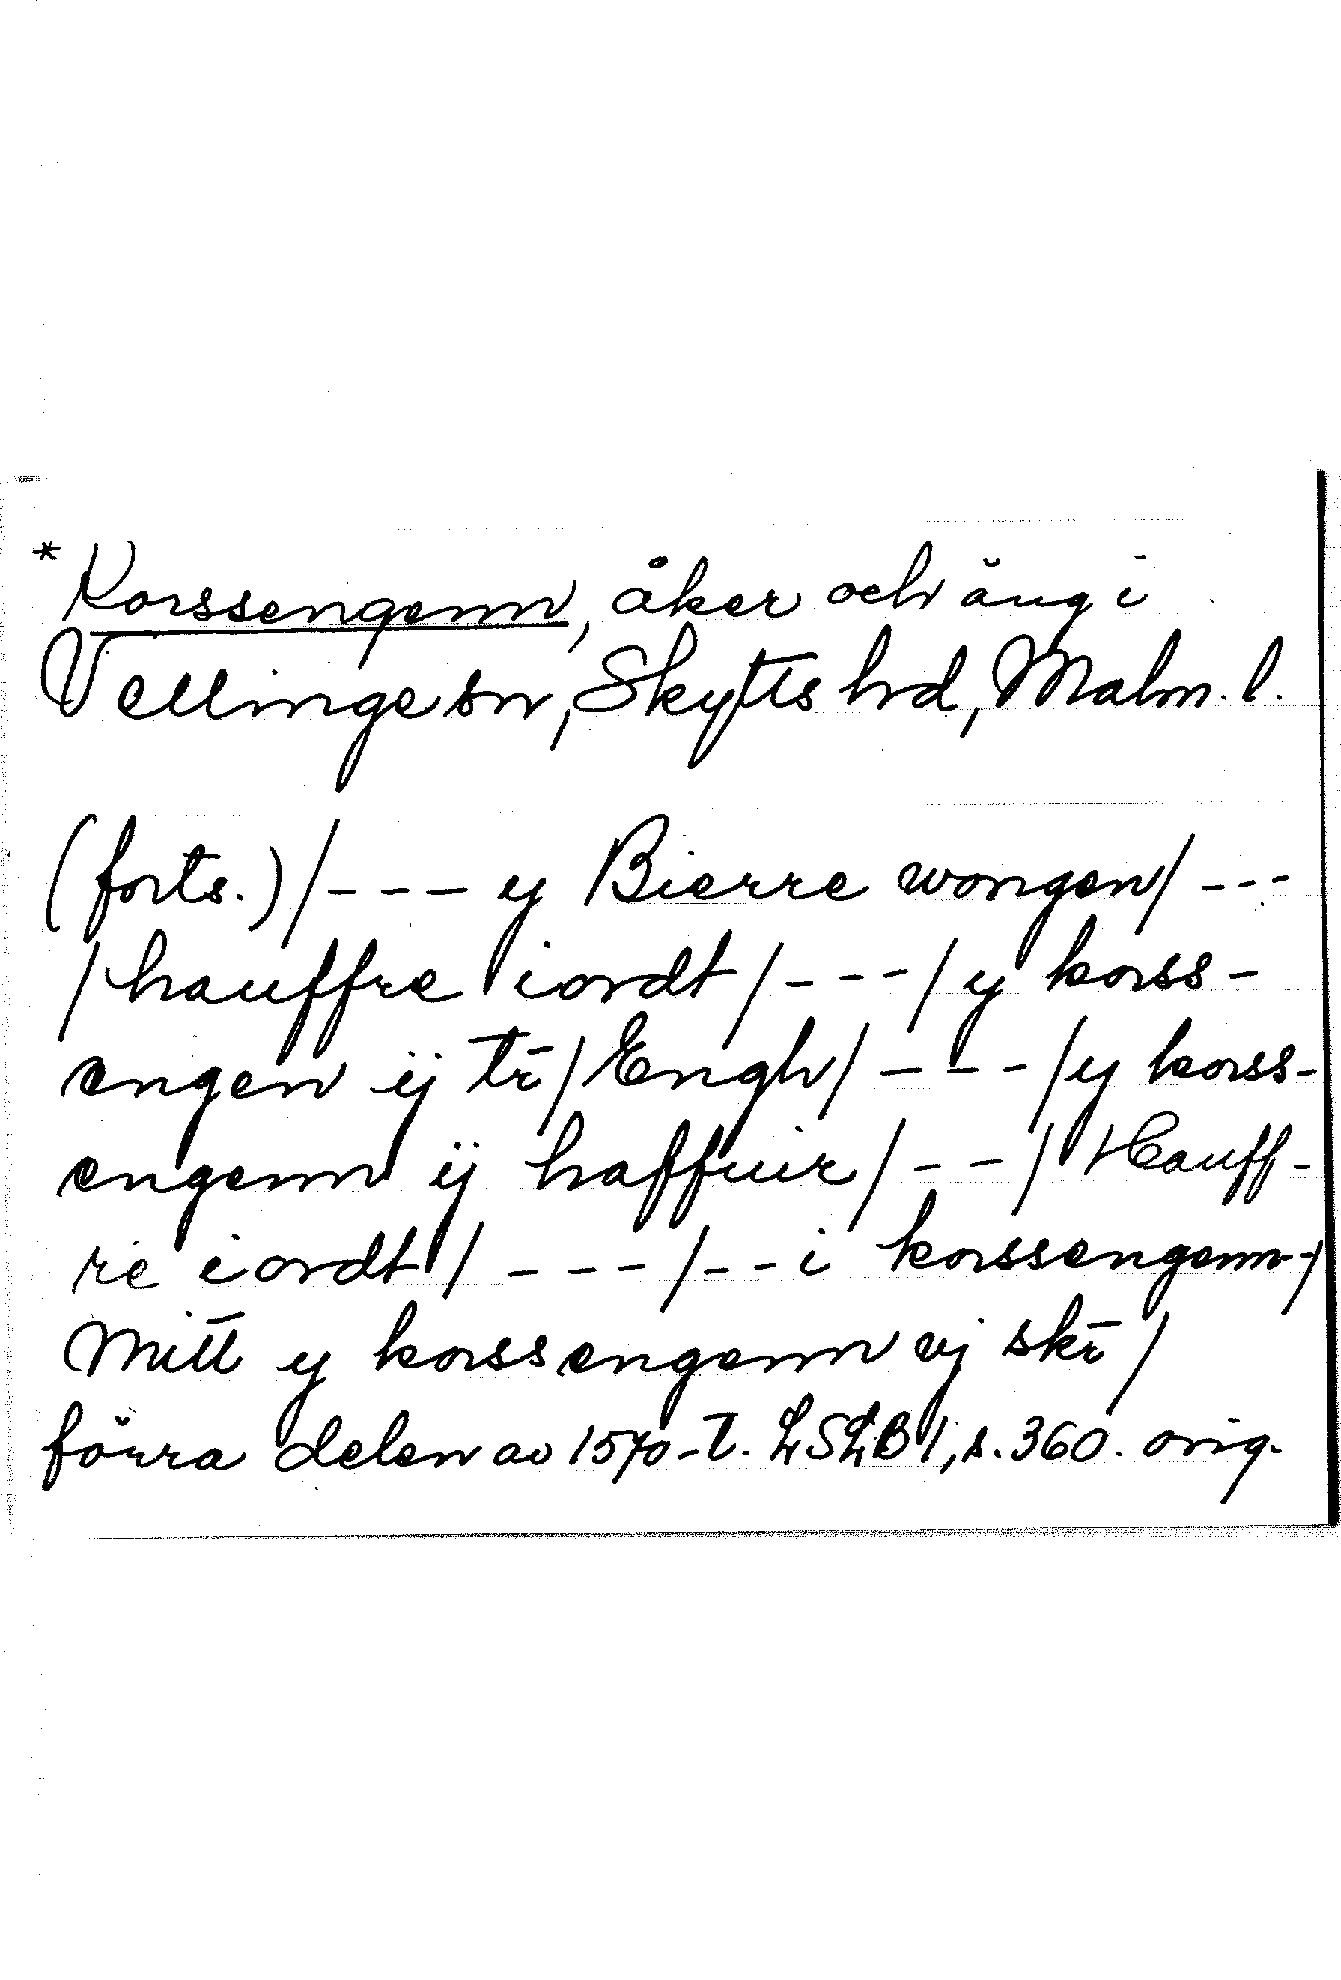 *Korssengenn, åker och äng i
Vellinge sn, Skytts hd, Malm. l.
(forts.) /--- y Bierre wongen/ ---
/hauffre iordt/---/y korss-
engen ij tr̄/Engh/---/y korss-
engenn ij haffuir/--/Hauff-
re iordt/---/--i korssengenn-/
Mitt y korssengenn vj skr̄/
förra delen av 1570-t. LSLB 1, s. 360. orig.